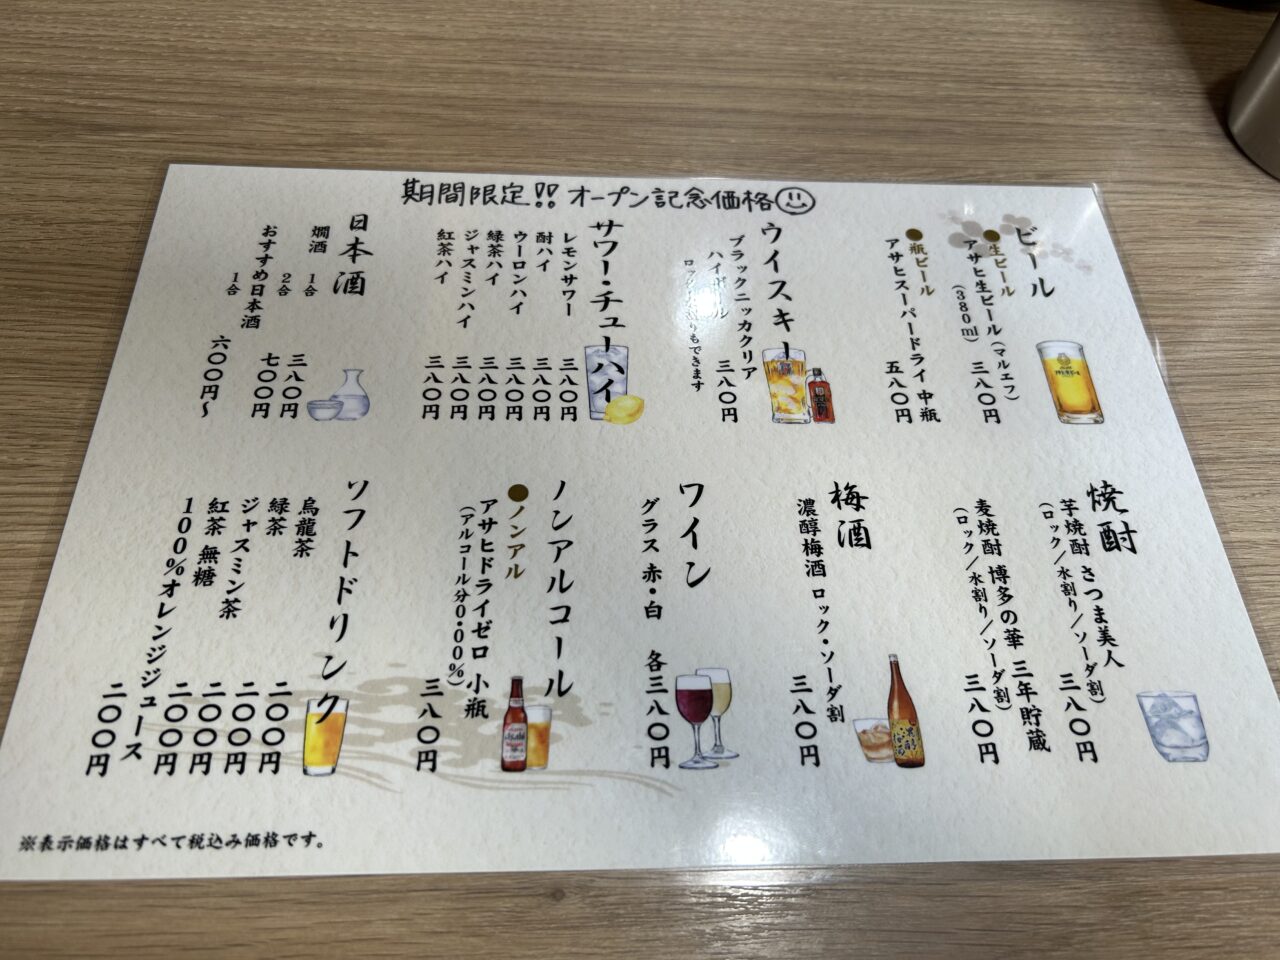 期間限定!! オープン記念価格
ビール
●生ビール
アサヒ生ビール(マルエフ)
(380ml)
三八〇円
●瓶ビール
アサヒスーパードライ 中瓶
五八〇円
ウイスキー
ブラックニッカクリア
ハイボール 三八〇円
もできます
サワー・チューハイ
レモンサワー 三八〇円
酎ハイ 三八〇円
ウーロンハイ 三八〇円
緑茶ハイ 三八〇円
ジャスミンハイ 三八〇円
紅茶ハイ 三八〇円
日本酒
燗酒 1合 三八〇円
2合 七〇〇円
おすすめ日本酒
1合 六〇〇円〜
焼酎
芋焼酎 さつま美人
(ロック/水割り/ソーダ割)
三八〇円
麦焼酎 博多の華 三年貯蔵
(ロック/水割り/ソーダ割)
三八〇円
梅酒
濃醇梅酒 ロック・ソーダ割
三八〇円
ワイン
グラス 赤・白 各三八〇円
ノンアルコール
●ノンアル
アサヒドライゼロ 小瓶
(アルコール分0.00%)
三八〇円
ソフトドリンク
烏龍茶 二〇〇円
緑茶 二〇〇円
ジャスミン茶 二〇〇円
紅茶 無糖 二〇〇円
100%オレンジジュース 二〇〇円
※表示価格はすべて税込み価格です。